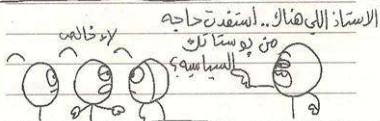 الاستاذ اللي هناك.. استفدت حاجه
من بوستاتك
السياسيه؟
لإ خالص